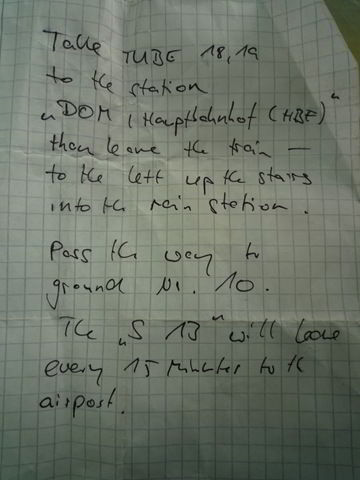 Take TUBE 18,19
to the station
„DOM / Hauptbahnhof (HBF)"
than leave the train —
to the left up the stairs
into the main station.
Pass the way to
ground Nr. 10.
The „S 13" will leave
every 15 minutes to the
airport.